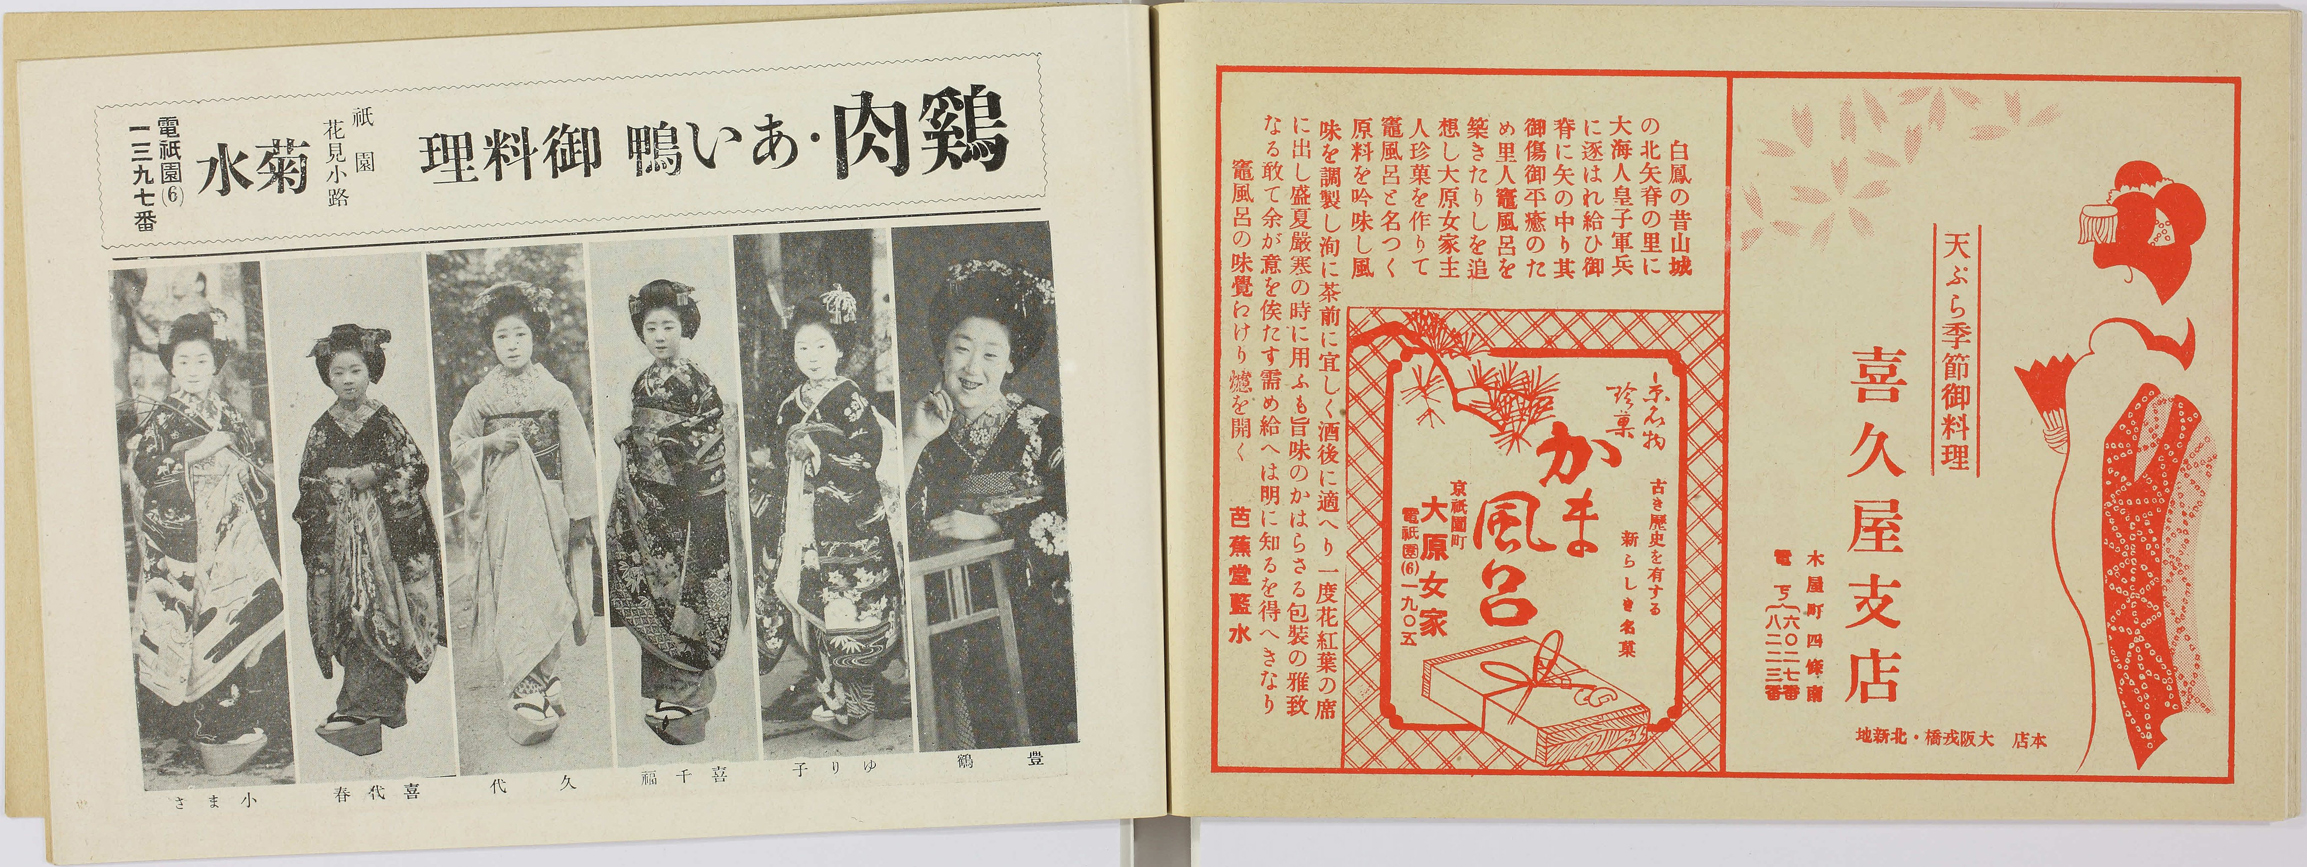 天ぷら季節御料理
喜久屋支店
木屋町四條南
電下(六〇二七番
八二二三番
本店 大阪戎橋・北新地
白鳳の昔山城
の北矢脊の里に
大海人皇子軍兵
に逐はれ給ひ御
脊に矢の中り其
御傷御平癒のた
め里人竈風呂を
築きたりしを追
想し大原女家主
人珍菓を作りて
竈風呂と名つく
原料を吟味し風
味を調製し洵に茶前に宜しく酒後に適へり一度花紅葉の席
に出し盛夏厳寒の時に用ふも旨味のかはらさる包装の雅致
なる敢て余が意を俟たす需め給へは明に知るを得へきなり
竈風呂の味覺わけり爐を開く 芭蕉堂藍水
京名物
珍菓
かま
風呂
古き歴史を有する
新らしき名菓
京祇園町
大原女家
電祇園(6)一九〇五
鷄肉・あい鴨 御料理
祇園
花見小路
菊水
電祇園(6)
一三九七番
豊鶴
ゆり子
喜千福
久代
喜代春
小まさ